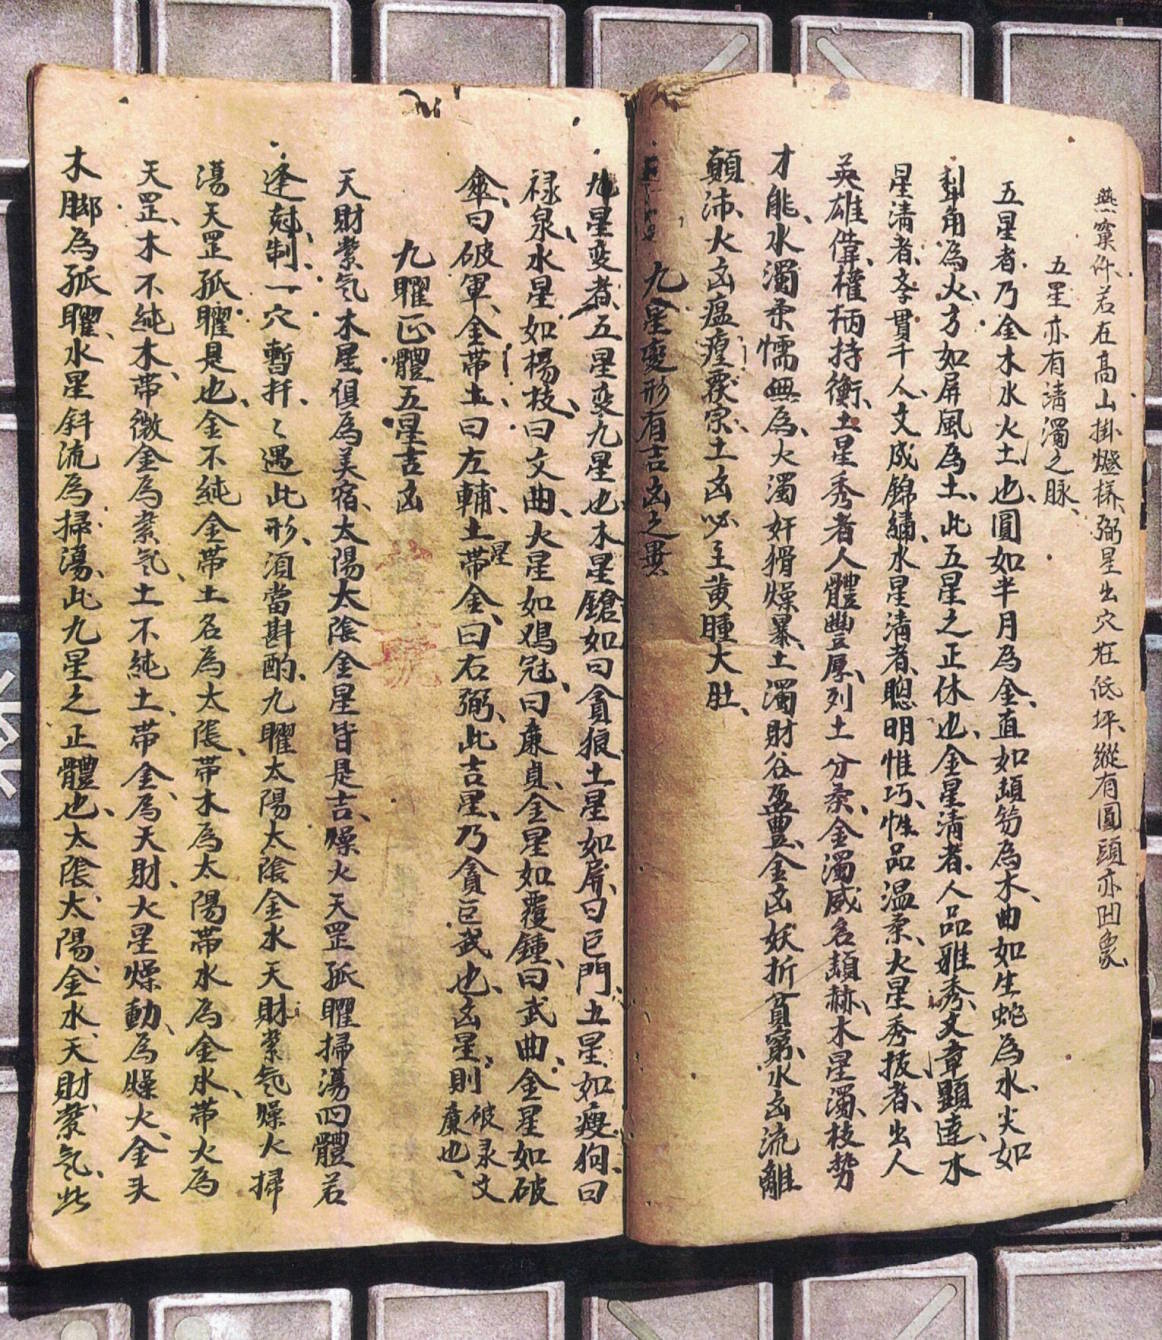 燕窠仵、若在高山掛燈樣、弼星出穴在低坪、縱有圓頭亦凹象、
五星亦有清濁之脉、
五星者、乃金木水火土也、圓如半月為金、直如頓笏為木、曲如生蛇為水、尖如
犁角為火、方如屏風為土、此五星之正体也、金星清者、人品雅秀、文章顯達、木
星清者、孝貫千人、文成錦繡、水星清者、聰明惟巧、性品温柔、火星秀拔者、出人
英雄偉、權柄持衡、土星秀者人體豐厚、列土分茅、金濁威名頡赫、木星濁、枝勢
才能、水濁柔懦無為、火濁奸猾燥暴、土濁財谷盈豊、金凶妖折貧窮、水凶流離
顛沛、火凶瘟瘟癭宗、土凶必主黄腫大肚、
九星變形有吉凶之異
九星变者、五星变九星也、木星鎗如曰貪狼、土星如屏、曰巨門、土星如瘦狗、曰
禄泉、水星如楊枝、曰文曲、火星如鷄冠、曰廉貞、金星如覆鍾、曰武曲、金星如破
傘、曰破軍、金帶土曰左輔、土星帶金、曰右弼、此吉星、乃貪巨武也、凶星則破彔文廉也、
九曜正體五星吉凶
天財紫气木星俱為美宿、太陽太陰金星皆是吉、燥火天罡孤曜掃蕩四體若
逢尅制一穴暫扦、〻遇此形、須當斟酌、九曜太陽太陰金水天財紫气燥火掃
蕩天罡孤曜是也、金不純金帶土名為太陰、帶木為太陽、帶水為金水、帶火為
天罡、木不純木、帶微金為紫气、土不純土、帶金為天財、火星燥動、為燥火、金头
木脚為孤曜、水星斜流為掃蕩、此九星之正體也、太陰、太陽、金水、天財、紫气、此